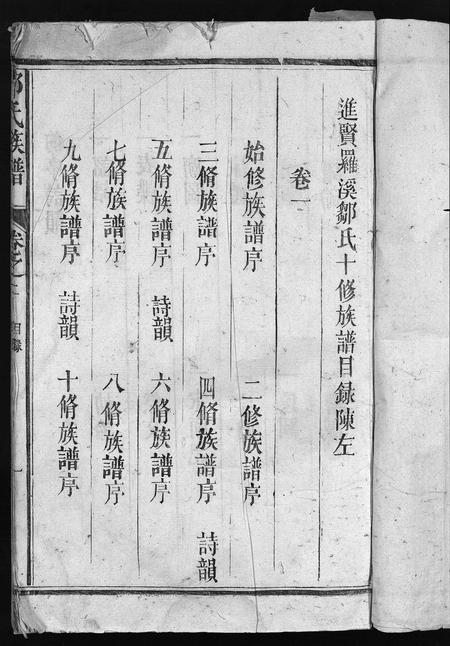 進賢羅溪鄒氏十修族譜目録陳左
卷一
始修族譜序 二修族譜序
三脩族譜序 四脩族譜序 詩韻
五脩族譜序 詩韻 六脩族譜序
七脩族譜序 八脩族譜序
九脩族譜序 詩韻 十脩族譜序
氏族譜
卷之一
目録